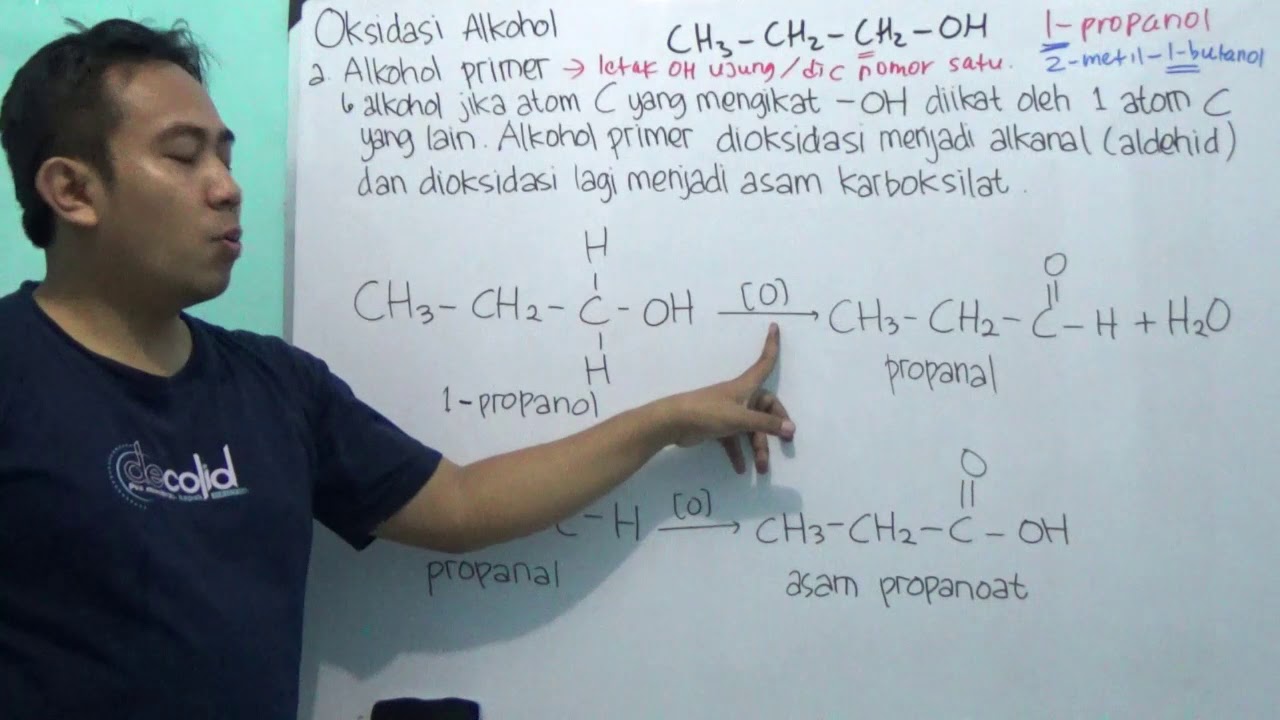 Oksidasi Alkohol
CH3-CH2-CH2-OH
1-propanol
2-metil-1-butanol
a. Alkohol primer → letak OH ujung/di C nomor satu.
↳ alkohol jika atom C yang mengikat -OH diikat oleh 1 atom C
yang lain. Alkohol primer dioksidasi menjadi alkanal (aldehid)
dan dioksidasi lagi menjadi asam karboksilat.
H
CH3-CH2-C-OH
H
[O]
O
CH3-CH2-C-H + H2O
1-propanol
propanal
C-H
[O]
O
CH3-CH2-C-OH
propanal
asam propanoat
decolid